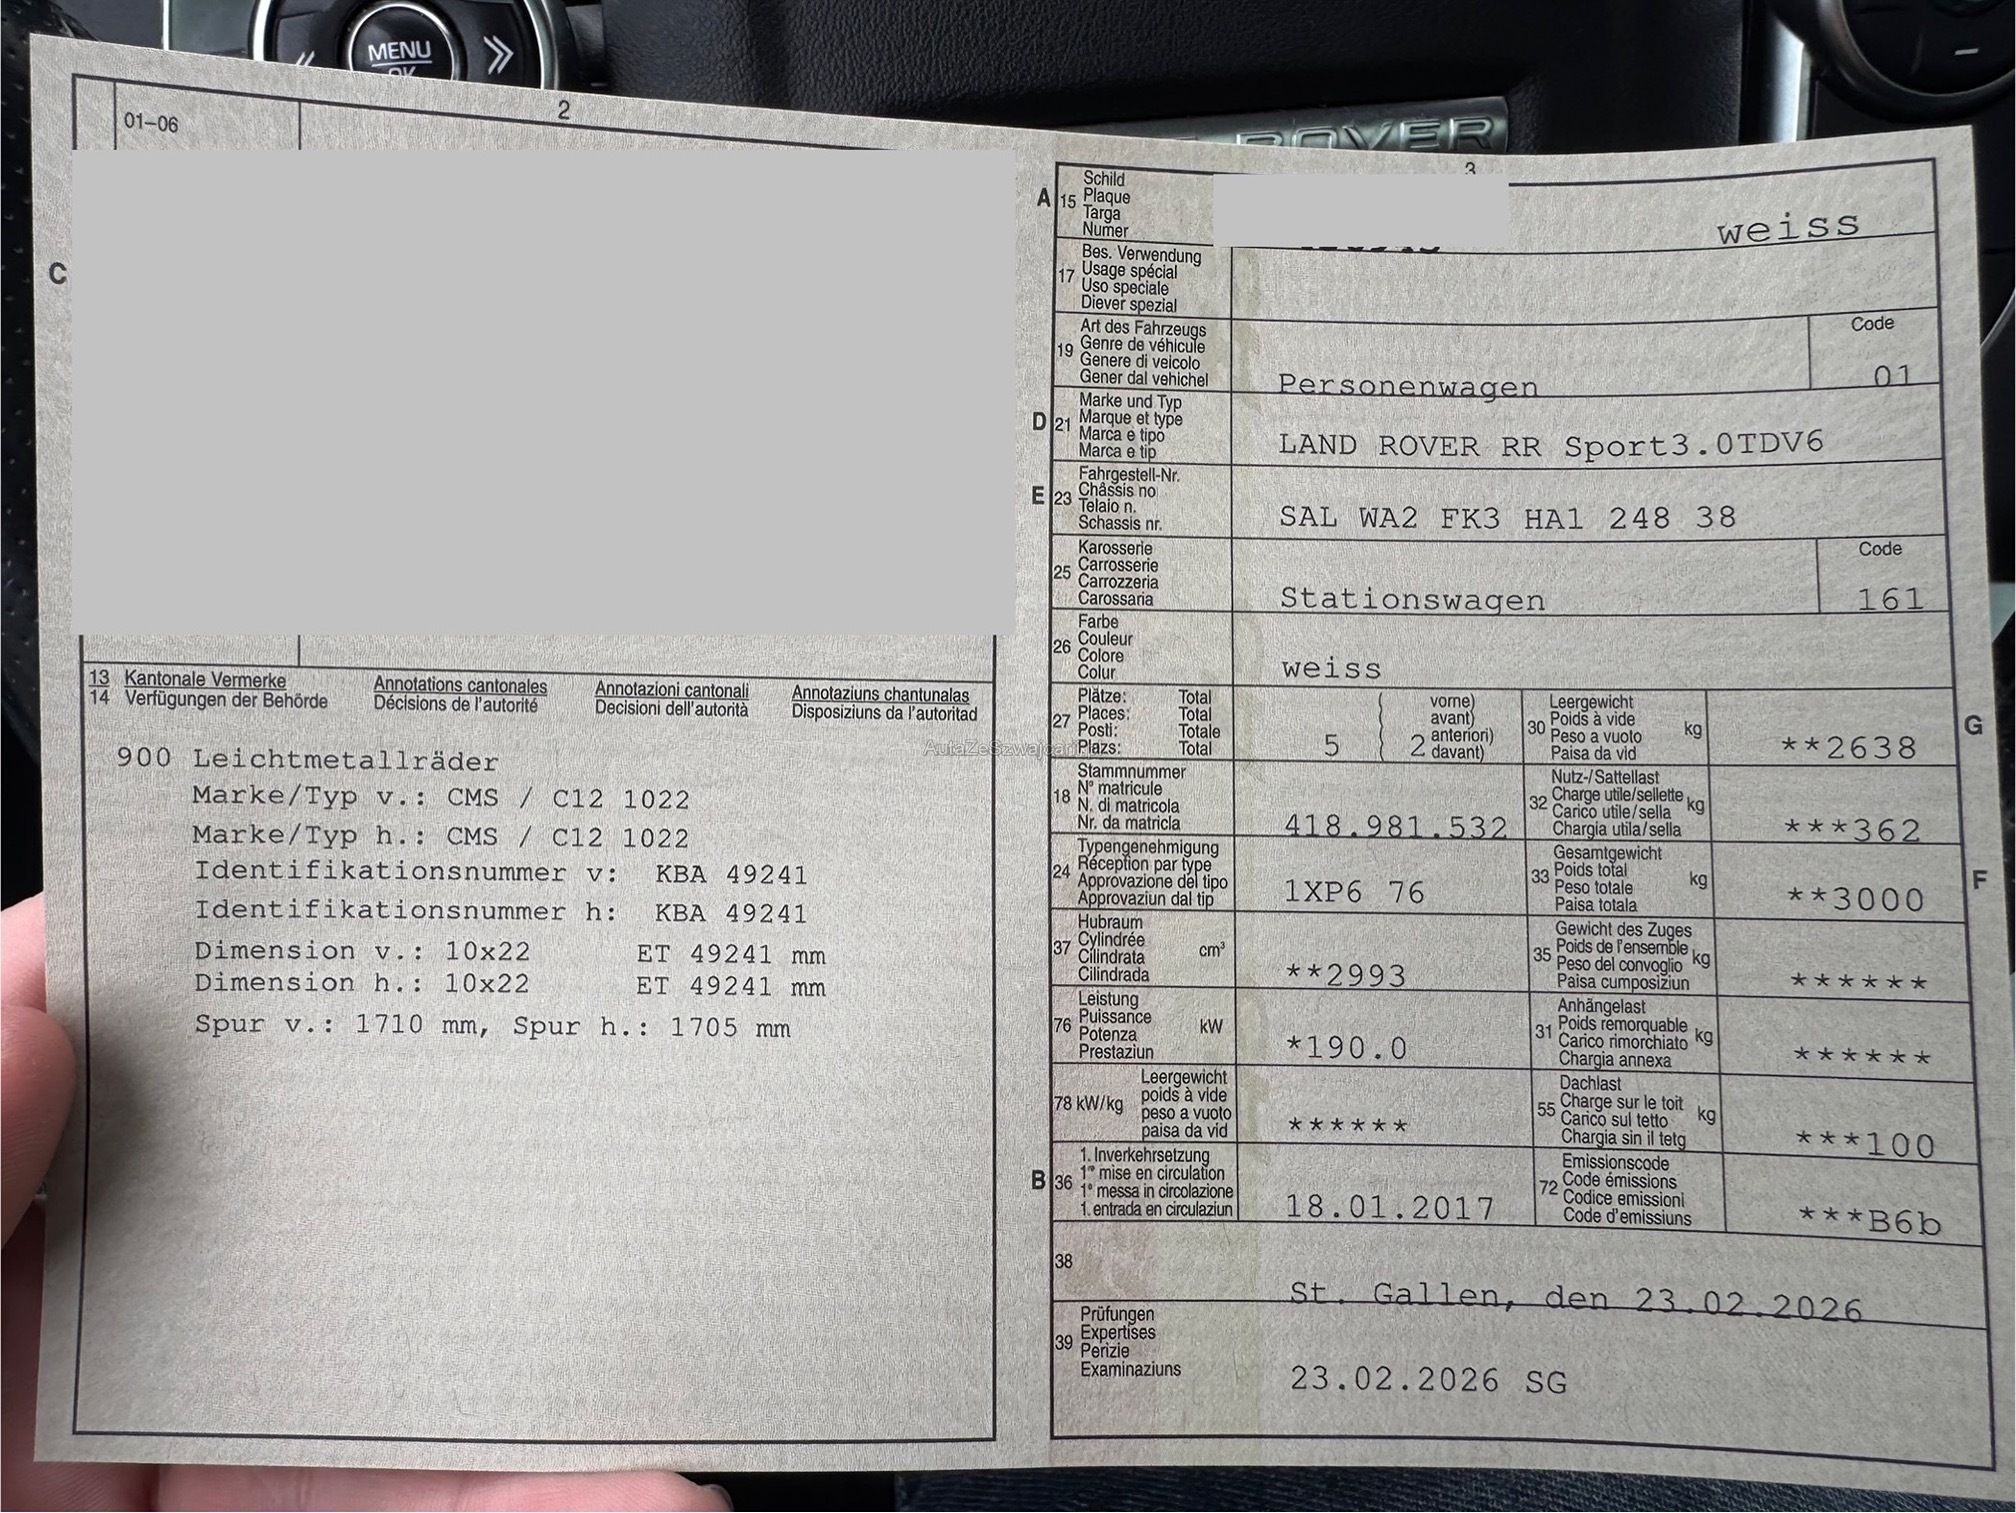 MENU
OK
ROVER
01–06
2
C
13 Kantonale Vermerke
14 Verfügungen der Behörde
Annotations cantonales
Décisions de l'autorité
Annotazioni cantonali
Decisioni dell'autorità
Annotaziuns chantunalas
Disposiziuns da l'autoritad
900 Leichtmetallräder
Marke/Typ v.: CMS / C12 1022
Marke/Typ h.: CMS / C12 1022
Identifikationsnummer v: KBA 49241
Identifikationsnummer h: KBA 49241
Dimension v.: 10x22 ET 49241 mm
Dimension h.: 10x22 ET 49241 mm
Spur v.: 1710 mm, Spur h.: 1705 mm
AutaZeSzwajcarii
3
A 15 Schild
Plaque
Targa
Numer
weiss
17 Bes. Verwendung
Usage spécial
Uso speciale
Diever spezial
19 Art des Fahrzeugs
Genre de véhicule
Genere di veicolo
Gener dal vehichel
Personenwagen
Code
01
D 21 Marke und Typ
Marque et type
Marca e tipo
Marca e tip
LAND ROVER RR Sport3.0TDV6
E 23 Fahrgestell-Nr.
Châssis no
Telaio n.
Schassis nr.
SAL WA2 FK3 HA1 248 38
25 Karosserie
Carrosserie
Carrozzeria
Carossaria
Stationswagen
Code
161
26 Farbe
Couleur
Colore
Colur
weiss
27 Plätze: Total
Places: Total
Posti: Totale
Plazs: Total
5 ( 2
vorne)
avant)
anteriori)
davant)
30 Leergewicht
Poids à vide
Peso a vuoto
Paisa da vid
kg
**2638
G
18 Stammnummer
N° matricule
N. di matricola
Nr. da matricla
418.981.532
32 Nutz-/Sattellast
Charge utile/sellette
Carico utile/sella
Chargia utila/sella
kg
***362
24 Typengenehmigung
Réception par type
Approvazione del tipo
Approvaziun dal tip
1XP6 76
33 Gesamtgewicht
Poids total
Peso totale
Paisa totala
kg
**3000
F
37 Hubraum
Cylindrée
Cilindrata
Cilindrada
cm³
**2993
35 Gewicht des Zuges
Poids de l'ensemble
Peso del convoglio
Paisa cumposiziun
kg
******
76 Leistung
Puissance
Potenza
Prestaziun
kW
*190.0
31 Anhängelast
Poids remorquable
Carico rimorchiato
Chargia annexa
kg
******
78 kW/kg
Leergewicht
poids à vide
peso a vuoto
paisa da vid
******
55 Dachlast
Charge sur le toit
Carico sul tetto
Chargia sin il tetg
kg
***100
B 36 1. Inverkehrsetzung
1re mise en circulation
1a messa in circolazione
1. entrada en circulaziun
18.01.2017
72 Emissionscode
Code émissions
Codice emissioni
Code d'emissiuns
***B6b
38
St. Gallen, den 23.02.2026
39 Prüfungen
Expertises
Perizie
Examinaziuns
23.02.2026 SG